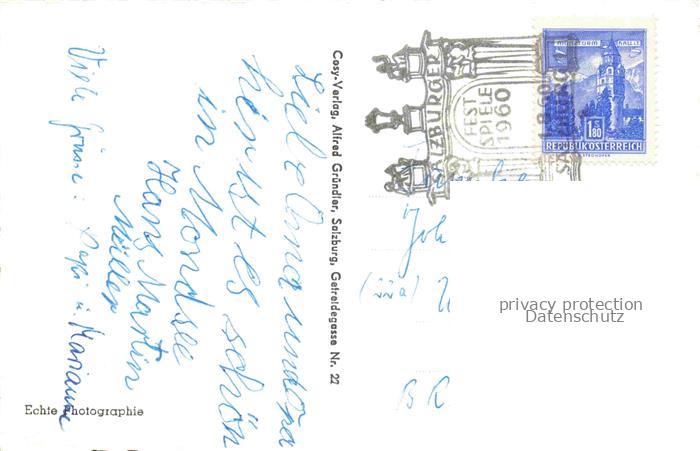 Liebe Oma und Opa
hir ist es schön
in Mondsee
Hans Martin
Müller
Viele Grüsse: Papi u. Marianne
Echte Photographie
Cosy-Verlag, Alfred Gründler, Salzburg, Getreidegasse Nr. 22
SALZBURGER
FEST
SPIELE
1960
MÜNZTURM HALL
1.80
REPUBLIK ÖSTERREICH
Joh
BR
privacy protection
Datenschutz